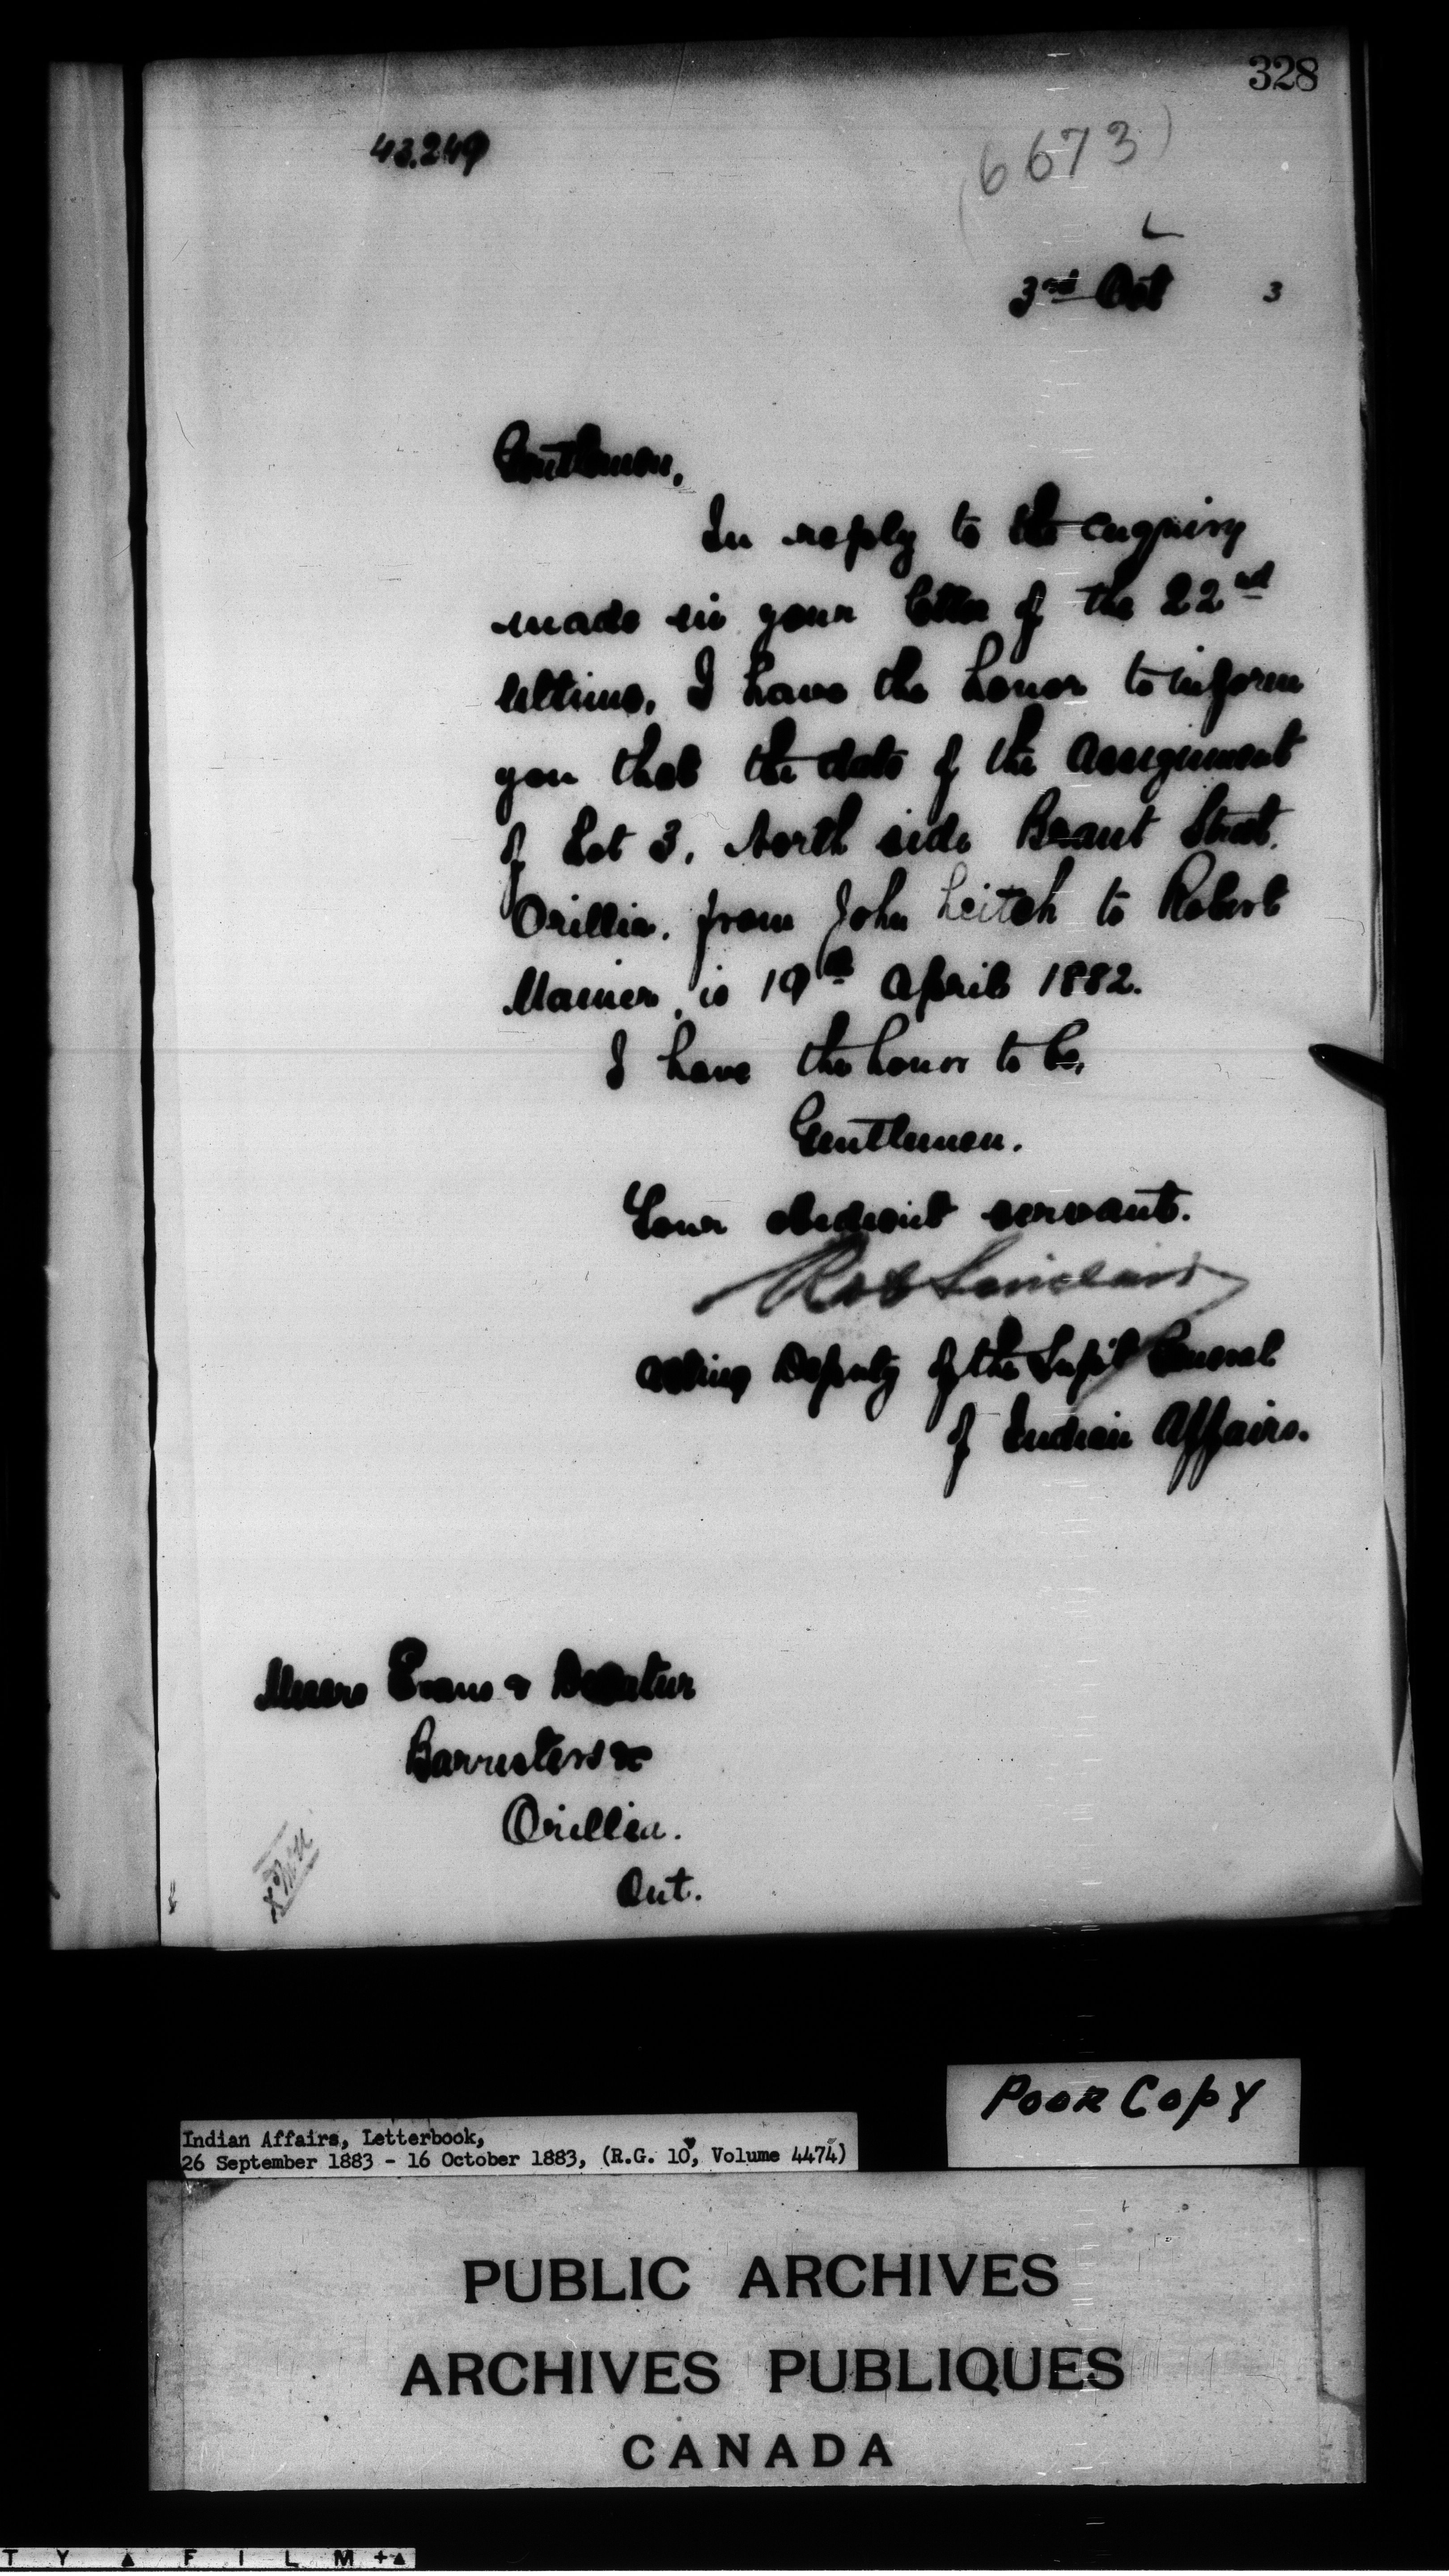 328
43.249
(6673)
3rd Oct 3
Gentlemen,
In reply to the enquiry
made in your letter of the 22nd
ultimo, I have the honor to inform
you that the date of the assignment
of Lot 3, North side Brant Street,
Orillia, from John Leitch to Robert
Mainer, is 19th April 1882.
I have the honor to be,
Gentlemen.
Your obedient servant.
Rob Sinclair
Acting Deputy of the Supt General
of Indian Affairs.
Messrs Evans &
Barristers &c
Orillia.
Ont.
Poor Copy
Indian Affairs, Letterbook,
26 September 1883 - 16 October 1883, (R.G. 10, Volume 4474)
PUBLIC ARCHIVES
ARCHIVES PUBLIQUES
CANADA
T Y ▲ F I L M +▲